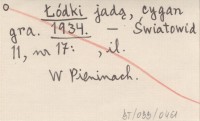 Łódki jadą, cygan
gra. 1934. – Światowid
11, nr 17: , il.
W Pieninach.